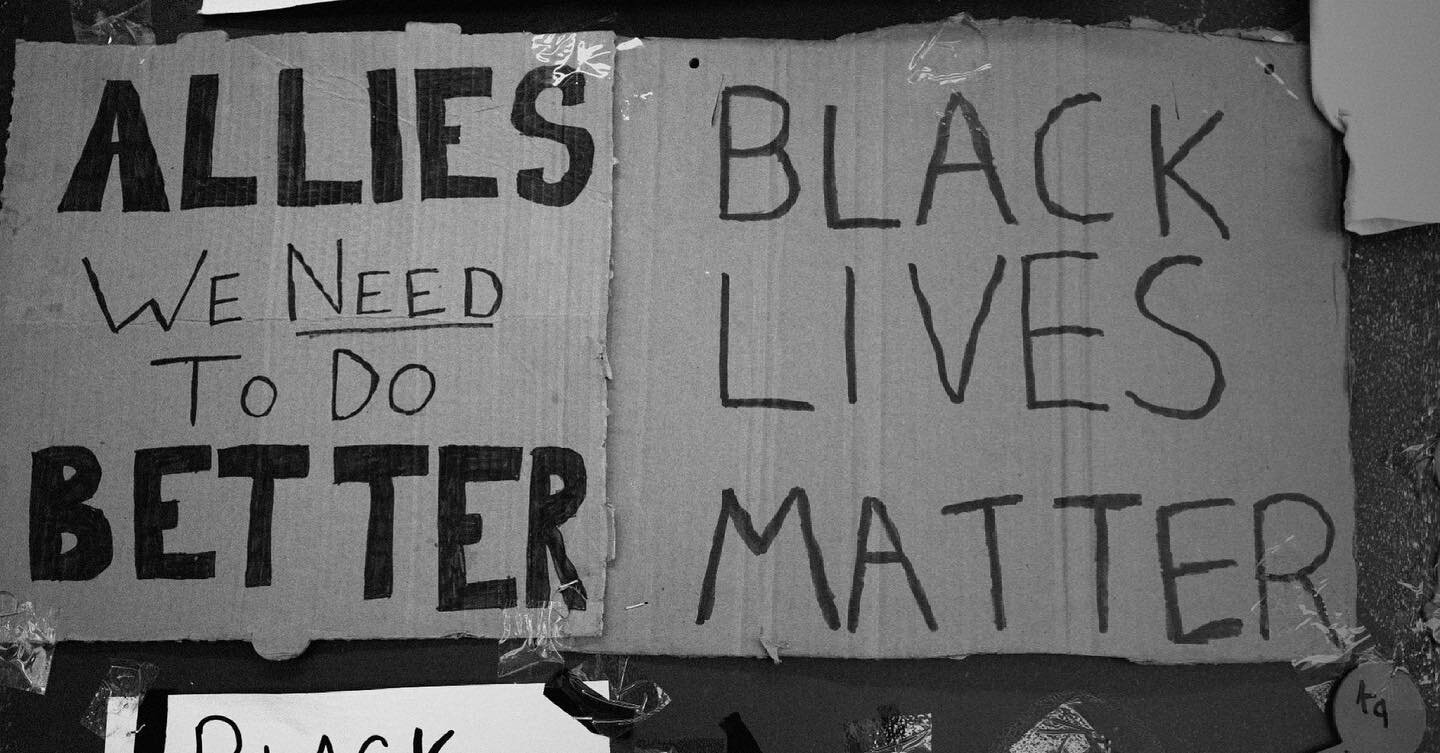 ALLIES
WE NEED
TO DO
BETTER
BLACK
LIVES
MATTER
BLACK